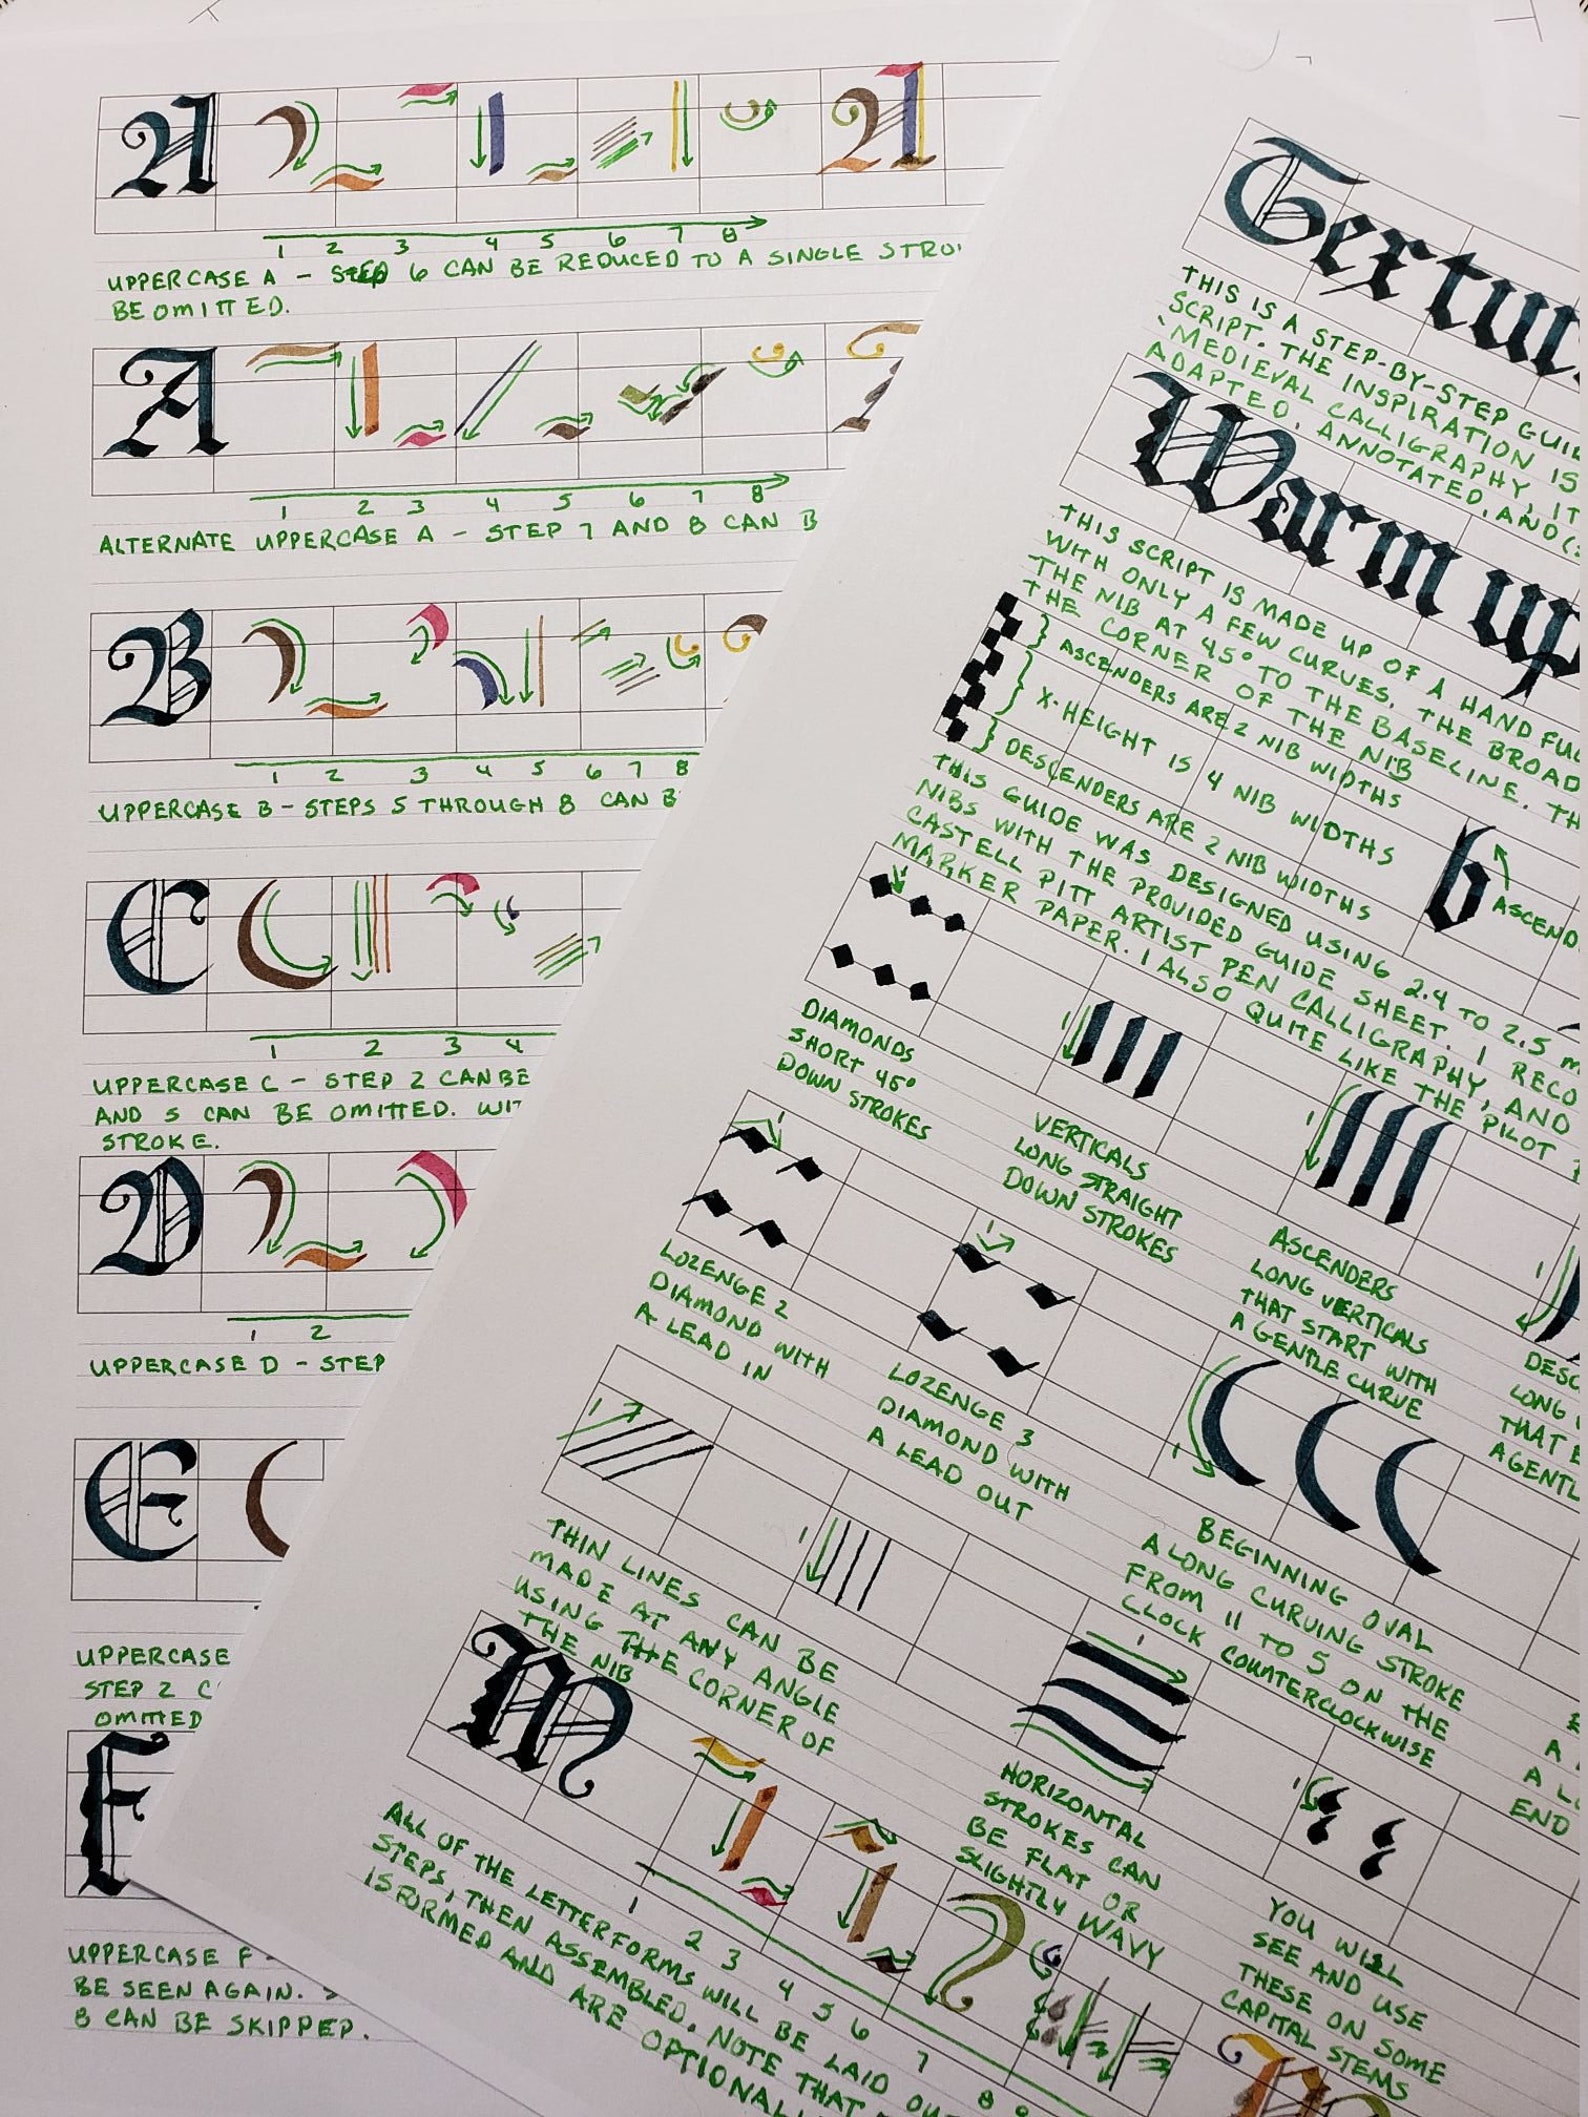 A A
1 2 3 4 5 6 7 8
UPPERCASE A - STEP 6 CAN BE REDUCED TO A SINGLE
BE OMITTED.
A
1 2 3 4 5 6 7 8
ALTERNATE UPPERCASE A - STEP 7 AND 8 CAN
B
1 2 3 4 5 6 7 8
UPPERCASE B - STEPS 5 THROUGH 8 CAN
C
1 2 3 4
UPPERCASE C - STEP 2 CAN BE
AND 5 CAN BE OMITTED.
STROKE.
D
1 2
UPPERCASE D - STEP
E
UPPERCASE
STEP 2
OMITTED
F
UPPERCASE F -
BE SEEN AGAIN.
8 CAN BE SKIPPED.
THIS IS A STEP-BY-STEP
SCRIPT. THE INSPIRATION IS
"MEDIEVAL CALLIGRAPHY, IT
ADAPTED, ANNOTATED, AND
Warm up
THIS SCRIPT IS MADE UP OF A HAND FUL
WITH ONLY A FEW CURVES. THE BROAD
THE NIB AT 45° TO THE BASELINE.
THE CORNER OF THE NIB
} ASCENDERS ARE 2 NIB WIDTHS
} X-HEIGHT IS 4 NIB WIDTHS
} DESCENDERS ARE 2 NIB WIDTHS
b
THIS GUIDE WAS DESIGNED USING 2.4 TO 2.5
NIBS WITH THE PROVIDED GUIDE SHEET. I
CASTELL PITT ARTIST PEN CALLIGRAPHY, AND
MARKER PAPER. I ALSO QUITE LIKE THE PILOT
1
DIAMONDS
SHORT 45°
DOWN STROKES
1
VERTICALS
LONG STRAIGHT
DOWN STROKES
1
ASCENDERS
LONG VERTICALS
THAT START WITH
A GENTLE CURVE
1
LONG
THAT
1
LOZENGE 2
DIAMOND WITH
A LEAD IN
1
LOZENGE 3
DIAMOND WITH
A LEAD OUT
1
BEGINNING OVAL
A LONG CURVING STROKE
FROM 11 TO 5 ON THE
CLOCK COUNTERCLOCKWISE
A
A
END
1
1
THIN LINES CAN BE
MADE AT ANY ANGLE
USING THE CORNER OF
THE NIB
1
HORIZONTAL
STROKES CAN
BE FLAT OR
SLIGHTLY WAVY
1
YOU WILL
SEE AND USE
THESE ON SOME
CAPITAL STEMS
M
1 2 3 4 5 6 7 8 9
ALL OF THE LETTERFORMS WILL BE LAID OUT
STEPS, THEN ASSEMBLED. NOTE THAT
IS FORMED AND ARE